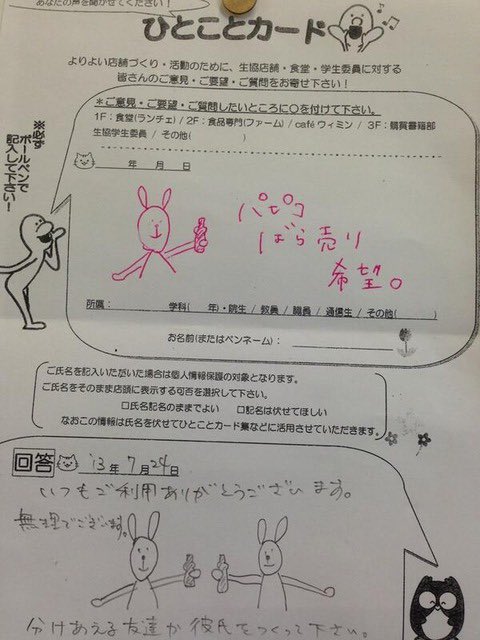 あなたの声を聞かせてください!
ひとことカード
よりよい店舗づくり・活動のために、生協店舗・食堂・学生委員に対する
皆さんのご意見・ご要望・ご質問をお寄せ下さい!
※必ず
ボールペンで
記入して下さい!
*ご意見・ご要望・ご質問したいところに○を付けて下さい。
1F:食堂(ランチェ) / 2F:食品専門(ファーム) / café ヴィミン / 3F:購買書籍部
生協学生委員 / その他( )
年 月 日
パピコ
ばら売り
希望。
所属: 学科( 年)・院生 / 教員 / 職員 / 通信生 / その他( )
お名前(またはペンネーム):
ご氏名を記入いただいた場合は個人情報保護の対象となります。
ご氏名をそのまま店頭に表示する可否を選択して下さい。
□氏名記名のままでよい □記名は伏せてほしい
なおこの情報は氏名を伏せてひとことカード集などに活用させていただきます。
回答 '13年 7月 24日
いつもご利用ありがとうございます。
無理でございます。
分けあえる友達か彼氏をつくって下さい。